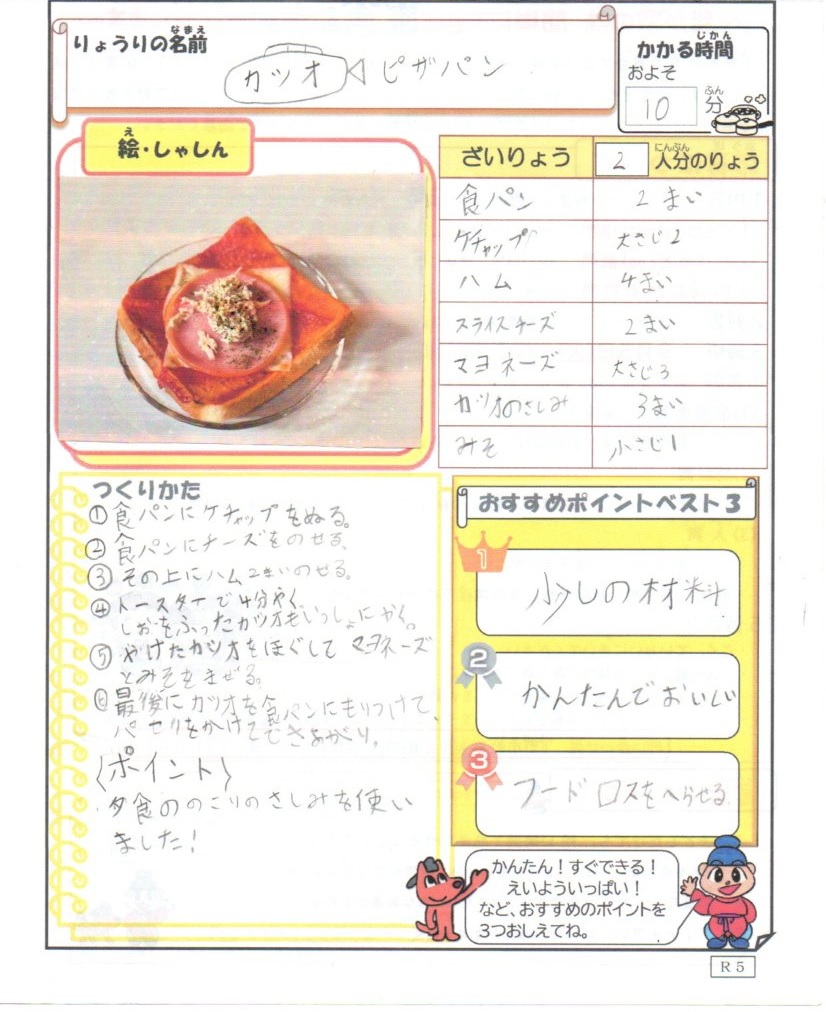 りょうりの名前
なまえ
カツオ ピザパン
かかる時間
じかん
およそ
10 分
ふん
絵・しゃしん
え
ざいりょう 2 人分のりょう
にんぶん
食パン 2まい
ケチャップ 大さじ2
ハム 4まい
スライスチーズ 2まい
マヨネーズ 大さじ3
カツオのさしみ 3まい
みそ 小さじ1
つくりかた
①食パンにケチャップをぬる。
②食パンにチーズをのせる。
③その上にハム2まいのせる。
④トースターで4分やく。
しおをふったカツオもいっしょにやく。
⑤やけたカツオをほぐしてマヨネーズ
とみそをまぜる。
⑥最後にカツオを食パンにもりつけて、
パセリをかけてできあがり。
〈ポイント〉
・夕食ののこりのさしみを使い
ました!
おすすめポイントベスト3
1
少しの材料
2
かんたんでおいしい
3
フードロスをへらせる
かんたん!すぐできる!
えいよういっぱい!
など、おすすめのポイントを
3つおしえてね。
R5